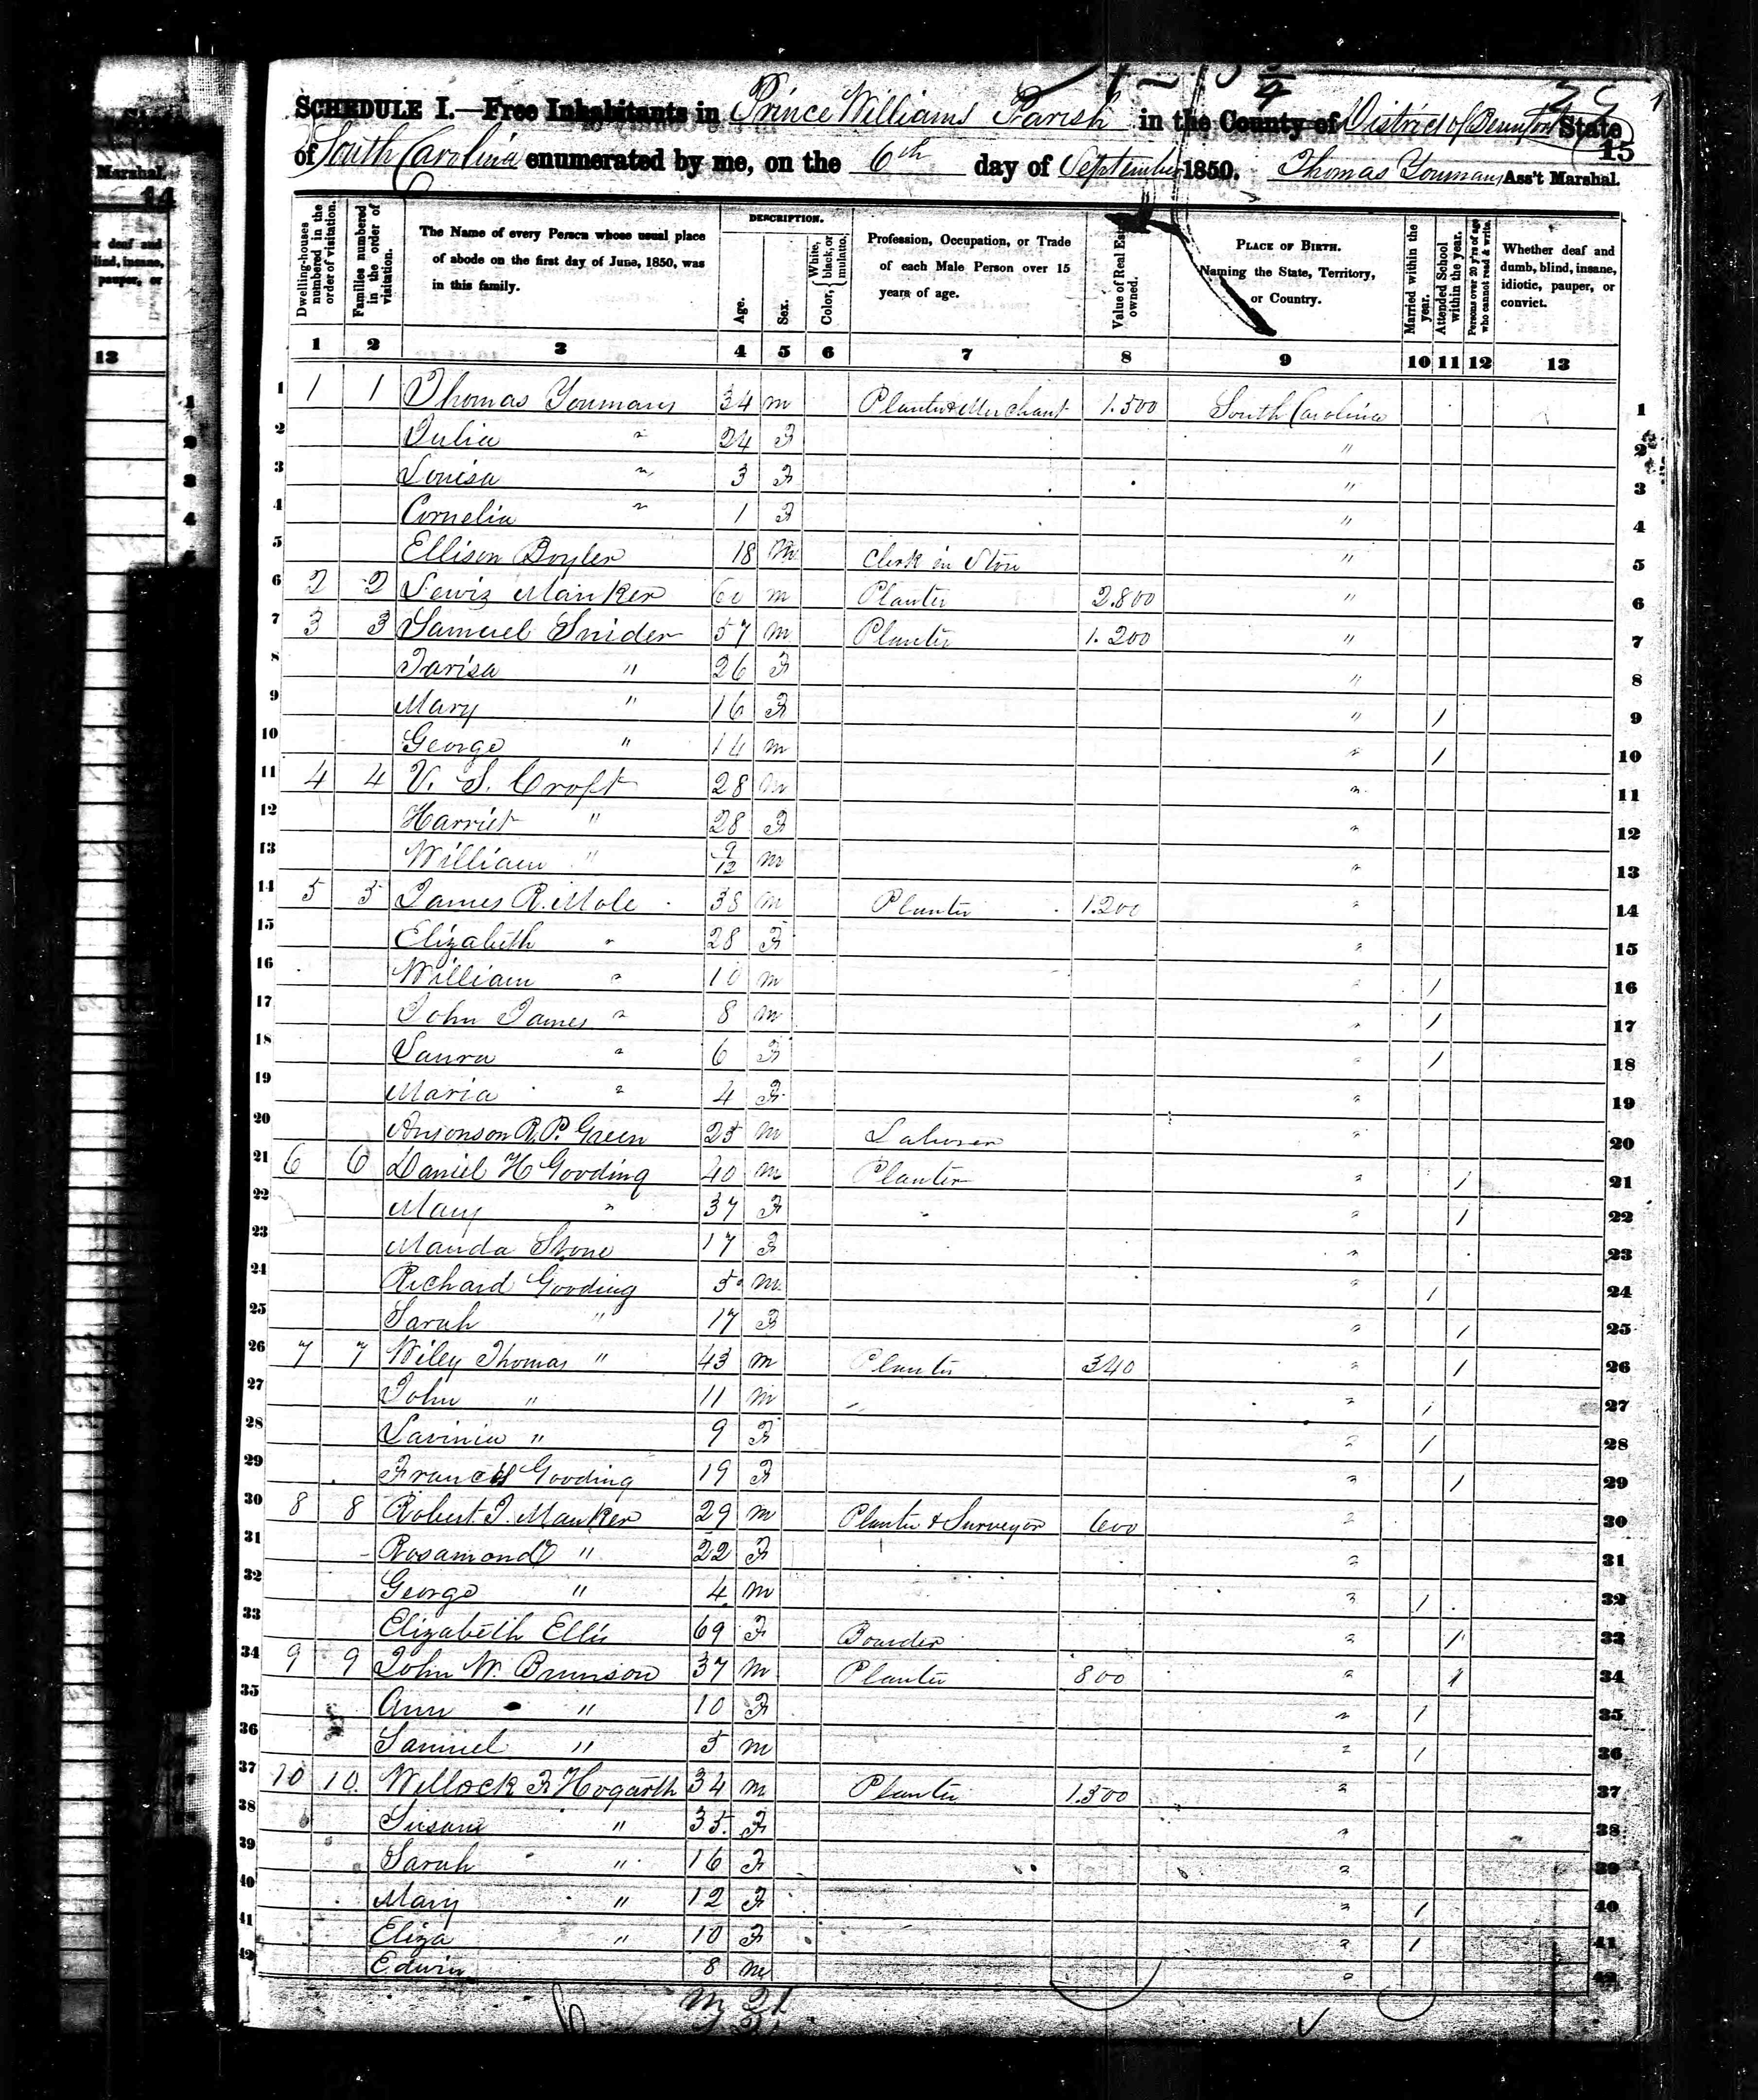 Marshal.
14
r deaf and
lind, insane,
pauper, or
13
1
2
3
4
SCHEDULE I.—Free Inhabitants in Prince Williams Parish in the County of District of Beaufort State
of South Carolina enumerated by me, on the 6th day of September 1850. Thomas Youmans Ass't Marshal.
15
Dwelling-houses numbered in the order of visitation.
Families numbered in the order of visitation.
The Name of every Person whose usual place of abode on the first day of June, 1850, was in this family.
DESCRIPTION.
Age.
Sex.
Color, { White, black, or mulatto.
Profession, Occupation, or Trade of each Male Person over 15 years of age.
Value of Real Estate owned.
PLACE OF BIRTH. Naming the State, Territory, or Country.
Married within the year.
Attended School within the year.
Persons over 20 y'rs of age who cannot read & write.
Whether deaf and dumb, blind, insane, idiotic, pauper, or convict.
1 2 3 4 5 6 7 8 9 10 11 12 13
1 1 1 Thomas Youmans 34 m Planter & Merchant 1.500 South Carolina 1
2 Julia " 24 F " 2
3 Louisa " 3 F " 3
4 Cornelia " 1 F " 4
5 Ellison Boyler 18 m Clerk in Store " 5
6 2 2 Lewis Manker 60 m Planter 2.800 " 6
7 3 3 Samuel Snider 57 m Planter 1.200 " 7
8 Tarisa " 26 F " 8
9 Mary " 16 F " 1 9
10 George " 14 m " 1 10
11 4 4 V. S. Croft 28 m " 11
12 Harriet " 28 F " 12
13 William " 9/12 m " 13
14 5 5 James R. Mole 38 m Planter 1.200 " 14
15 Elizabeth " 28 F " 15
16 William " 10 m " 1 16
17 John James " 8 m " 1 17
18 Laura " 6 F " 1 18
19 Maria " 4 F " 19
20 R. P. Green 25 m Laborer " 20
21 6 6 Daniel H Gooding 40 m Planter " 1 21
22 Mary " 37 F " 1 22
23 Manda Stone 17 F " 23
24 Richard Gooding 5 m " 1 24
25 Sarah " 17 F " 1 25
26 7 7 Wiley Thomas " 43 m Planter 340 " 1 26
27 John " 11 m " 1 27
28 Lavinia " 9 F " 1 28
29 Francis Gooding 19 F " 1 29
30 8 8 Robert J. Manker 29 m Planter & Surveyor 600 " 30
31 Rosamond " 22 F " 31
32 George " 4 m " 1 32
33 Elizabeth Ellis 69 F Boarder " 1 33
34 9 9 John W. Brunson 37 m Planter 800 " 1 34
35 Ann " 10 F " 1 35
36 Samuel " 5 m " 1 36
37 10 10 Willock F Hogarth 34 m Planter 1.500 " 37
38 Susan " 35 F " 38
39 Sarah " 16 F " 39
40 Mary " 12 F " 1 40
41 Eliza " 10 F " 1 41
42 Edwin 8 m " 42
M 21
F 21